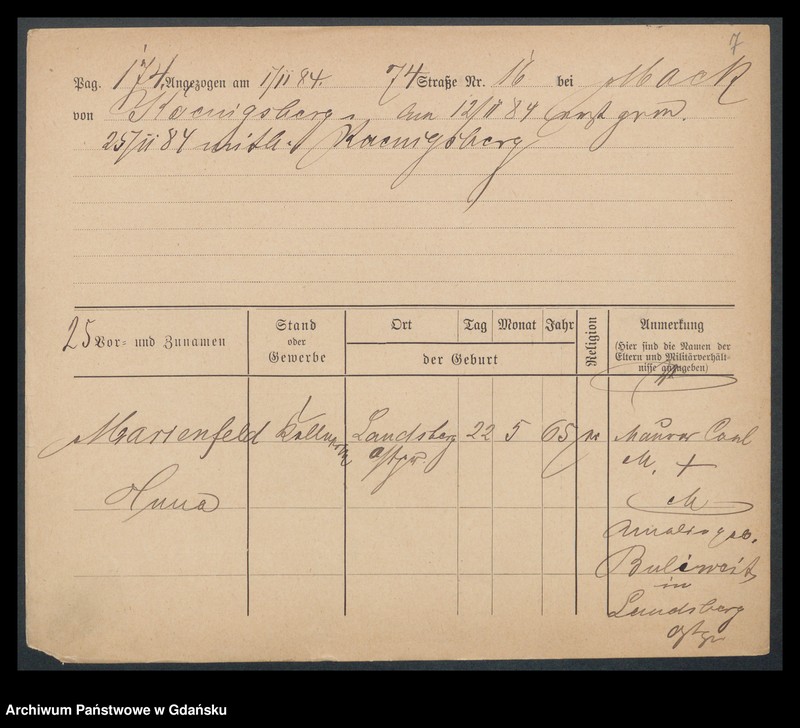 7
Pag. 174. Angezogen am 1/II 84. 74 Straße Nr. 16 bei Mack
von Koenigsberg. Am 12/II 84
25/II 84 mith. Koenigsberg
25 Vor- und Zunamen
Stand
oder
Gewerbe
Ort Tag Monat Jahr
der Geburt
Religion
Anmerkung
(Hier sind die Namen der
Eltern und Militärverhält-
nisse anzugeben)
Marienfeld Landsberg 22 5 65 Maurer Carl
Ostpr. M. +
Anna M
Amalie geb.
in
Landsberg
Ostpr
Archiwum Państwowe w Gdańsku